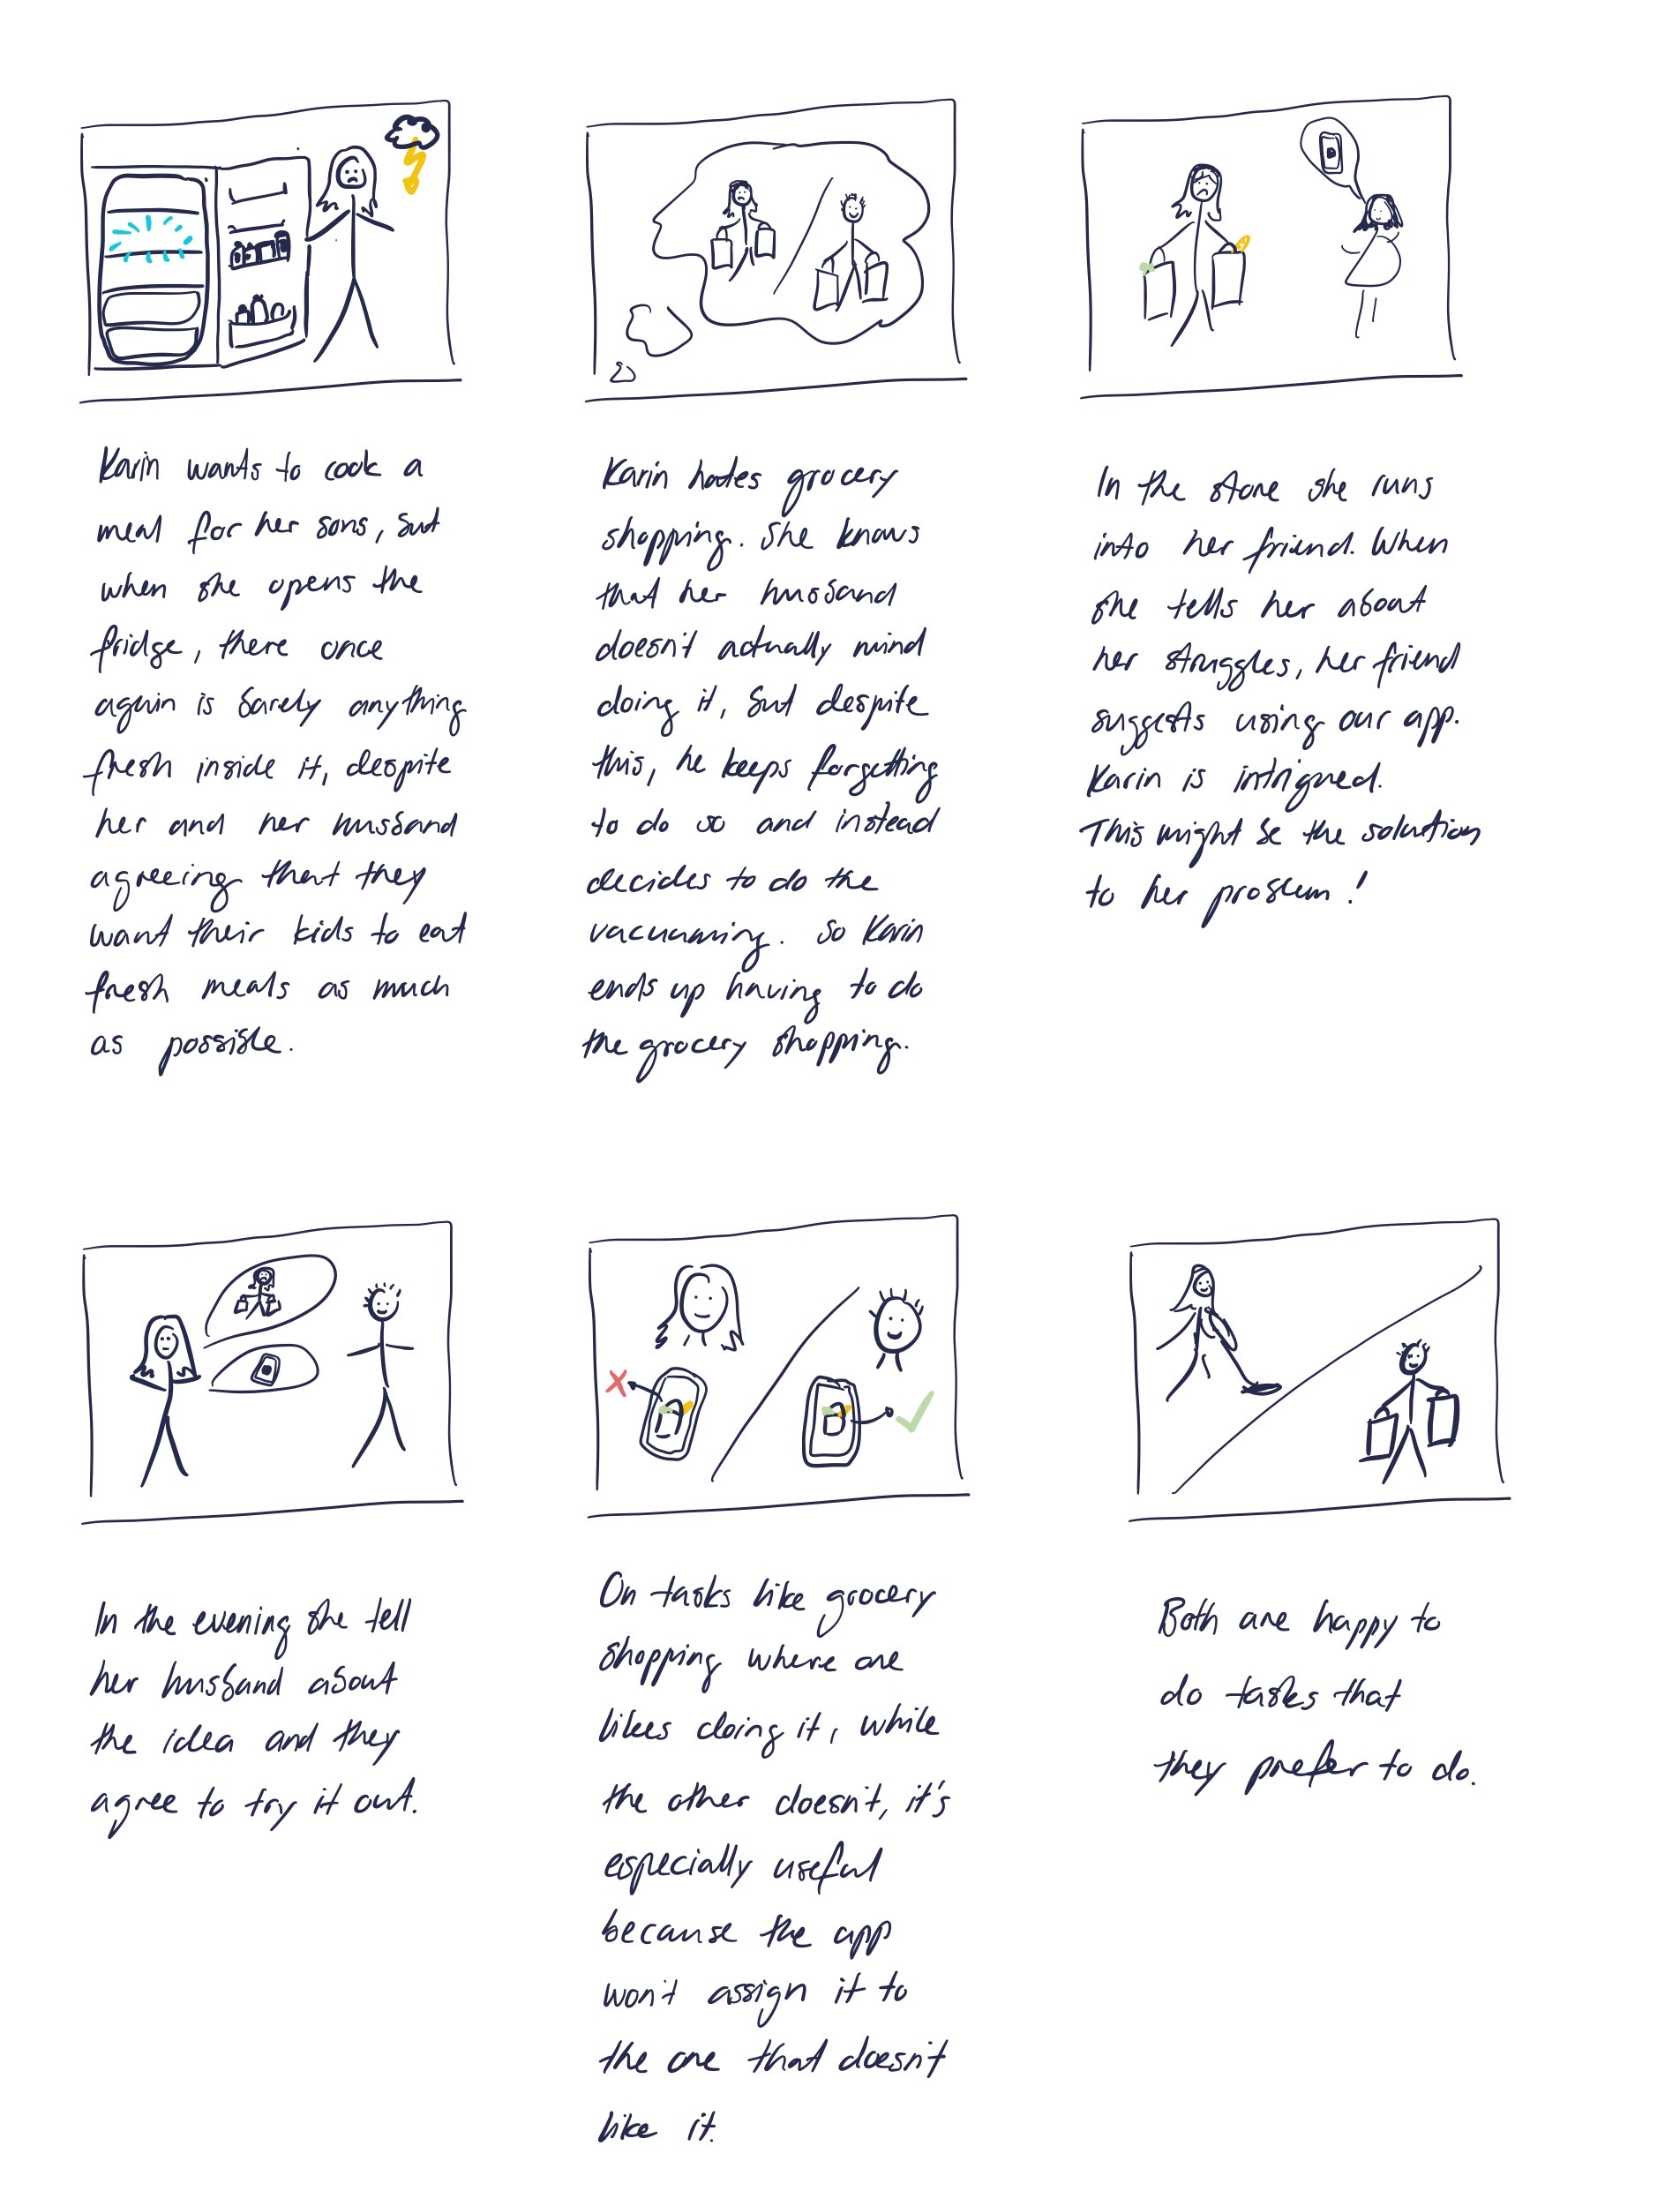 Karin wants to cook a
meal for her sons, but
when she opens the
fridge, there once
again is barely anything
fresh inside it, despite
her and her husband
agreeing that they
want their kids to eat
fresh meals as much
as possible.
Karin hates grocery
shopping. She knows
that her husband
doesn't actually mind
doing it, but despite
this, he keeps forgetting
to do so and instead
decides to do the
vacuuming. So Karin
ends up having to do
the grocery shopping.
In the store she runs
into her friend. When
she tells her about
her struggles, her friend
suggests using our app.
Karin is intrigued.
This might be the solution
to her problem!
In the evening she tell
her husband about
the idea and they
agree to try it out.
On tasks like grocery
shopping where one
likes doing it, while
the other doesn't, it's
especially useful
because the app
won't assign it to
the one that doesn't
like it.
Both are happy to
do tasks that
they prefer to do.